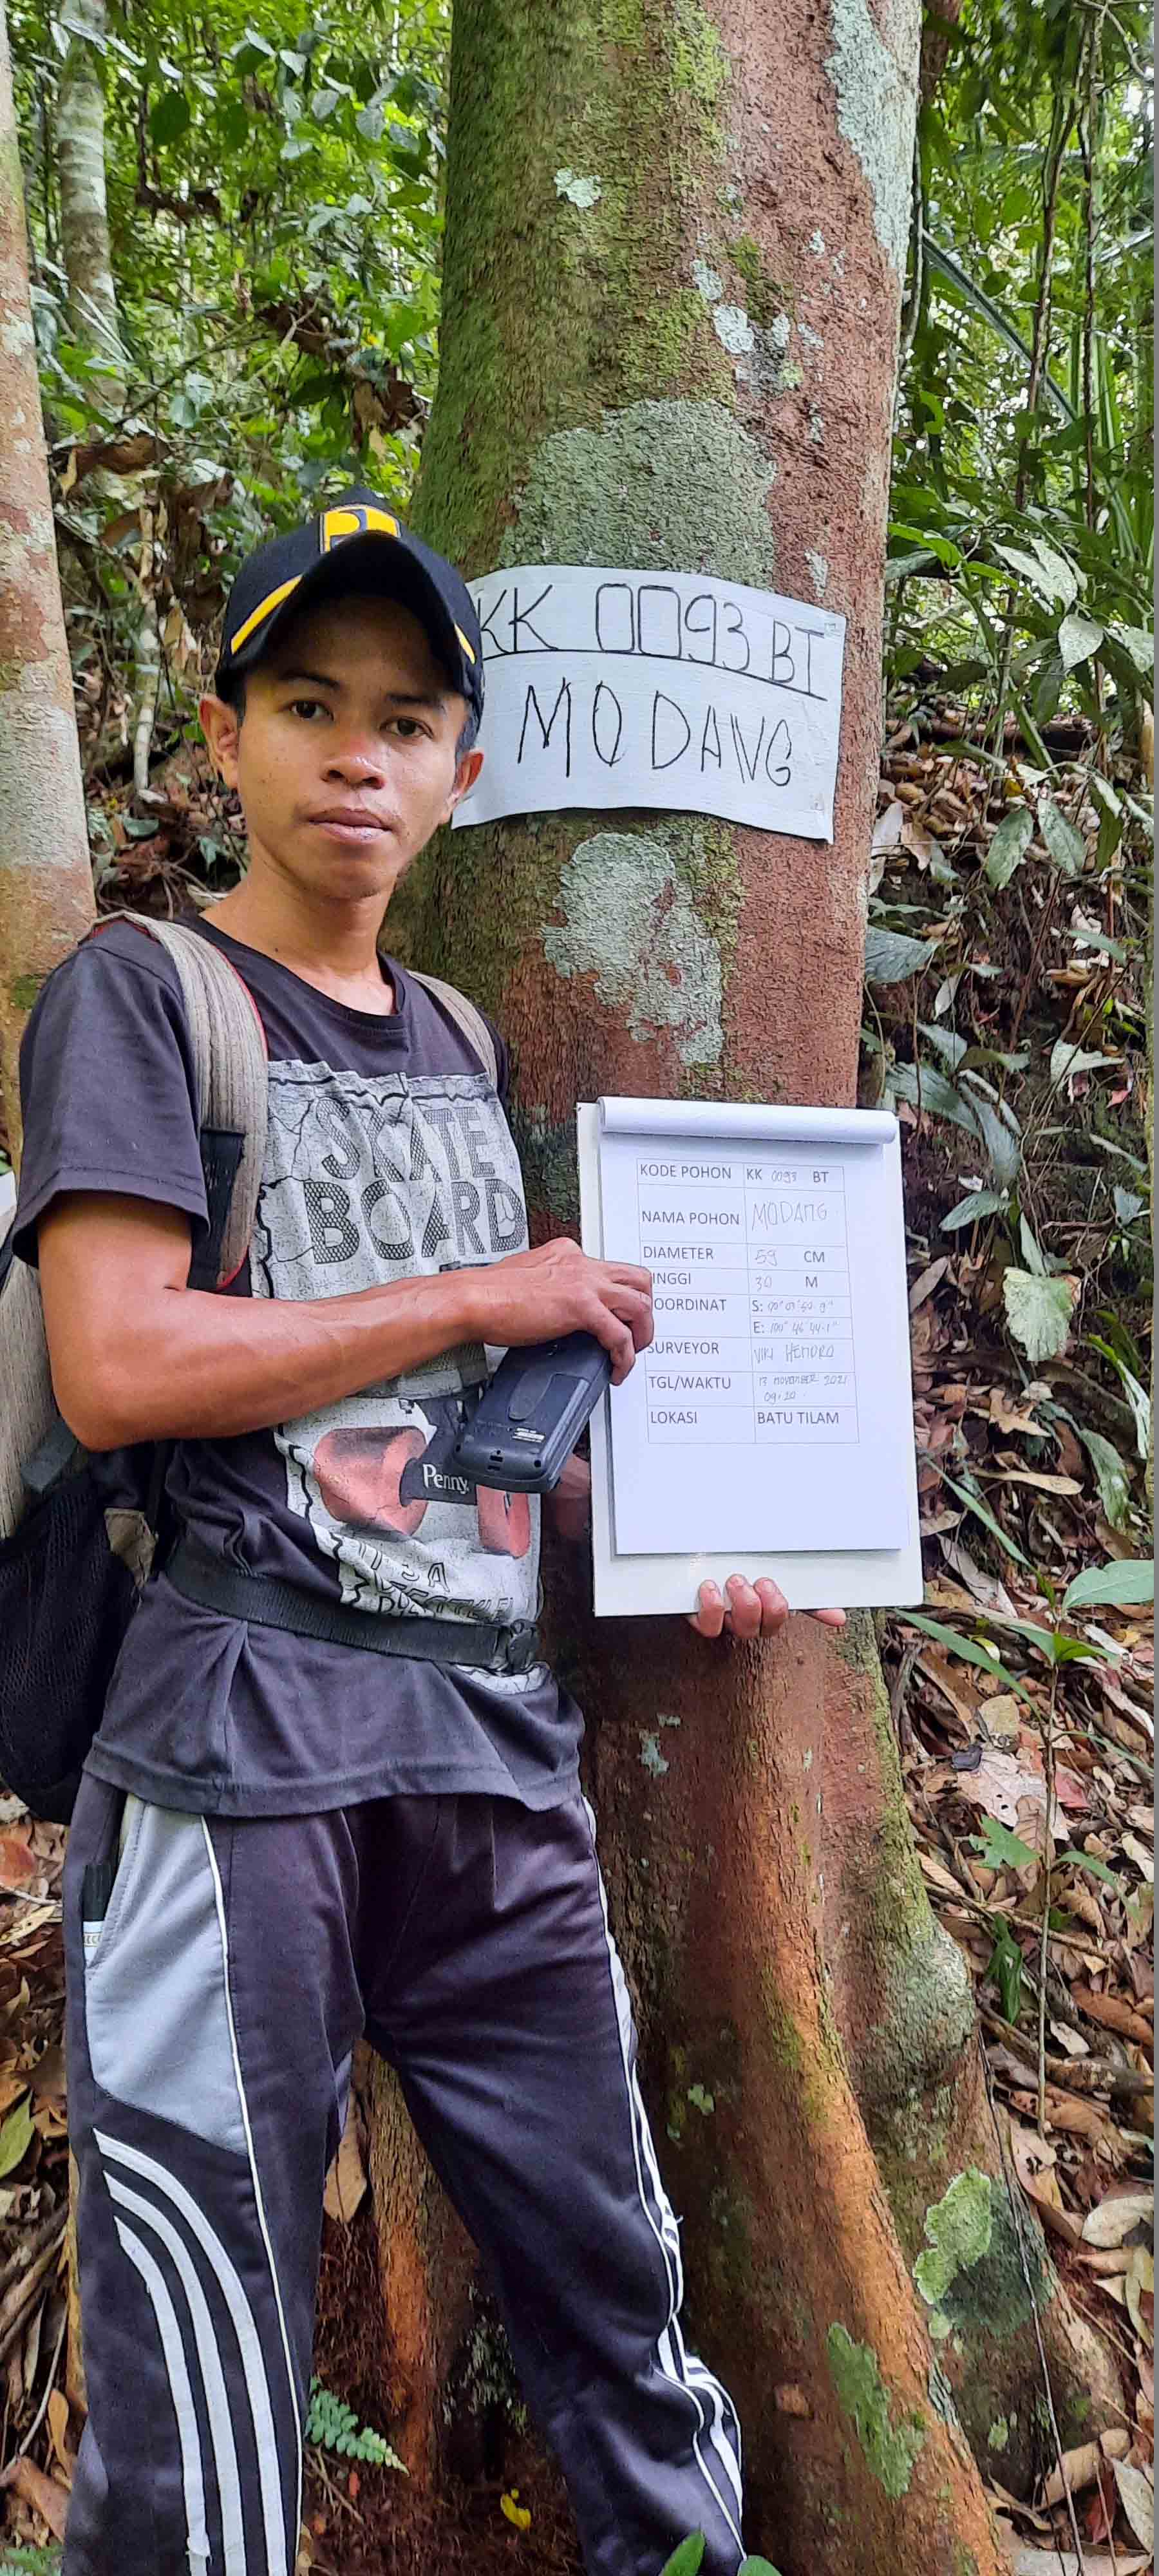 KK 0093 BT
MODANG
SKATE
BOARD
Penny
KODE POHON KK 0093 BT
NAMA POHON MODANG
DIAMETER 59 CM
INGGI 30 M
OORDINAT S:
E:
SURVEYOR VIKI HENDRO
TGL/WAKTU 13 NOVEMBER 2021
09.20
LOKASI BATU TILAM